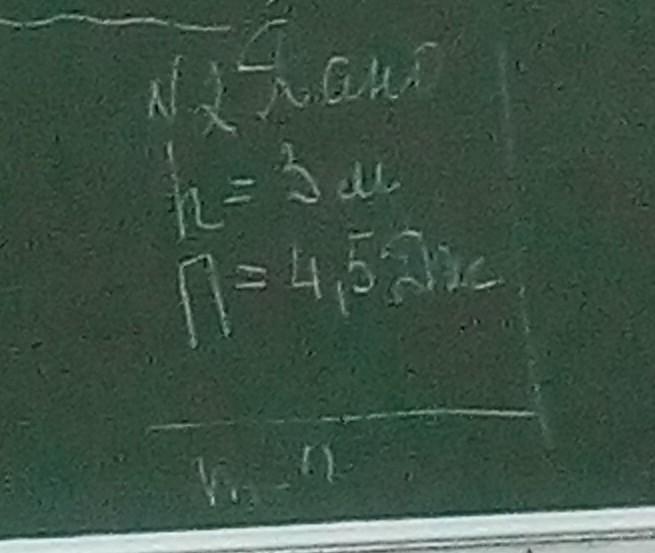 N2 Дано
h = 3 м
П = 4,5 Дж
m - ?